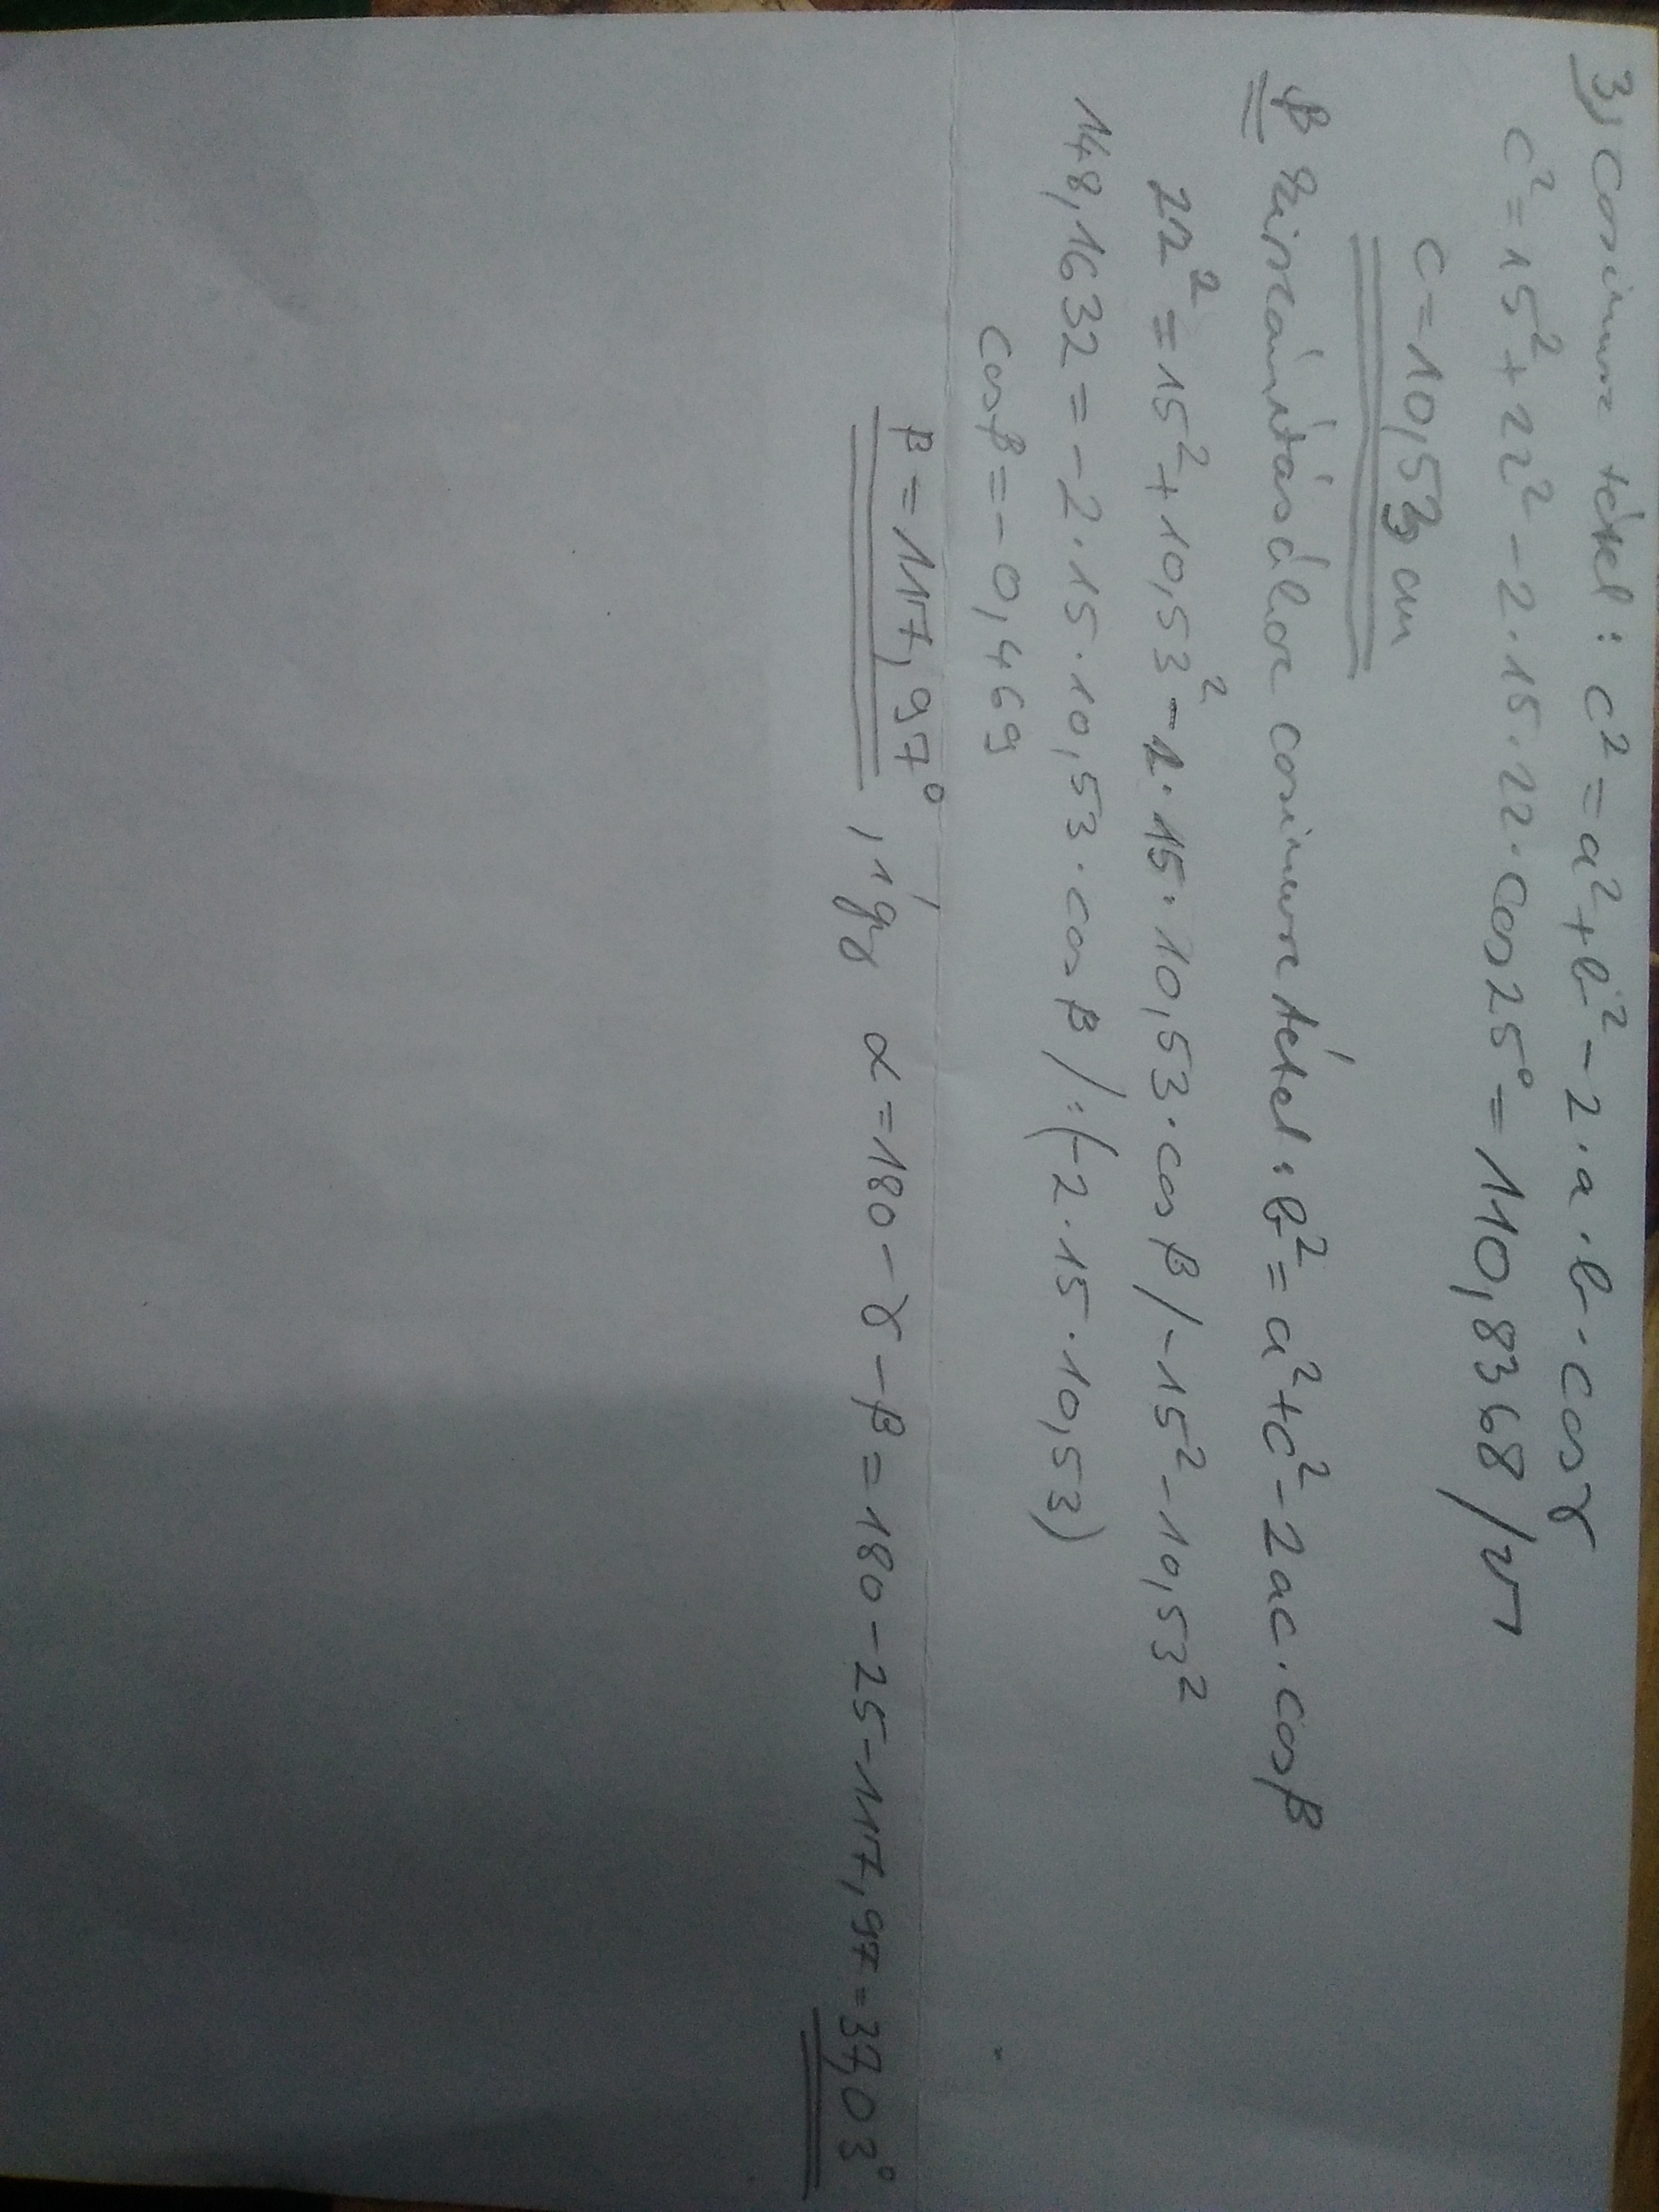 3, Cosinus tétel: c² = a² + b² - 2·a·b·cosγ
c² = 15² + 22² - 2·15·22·cos25° = 110,8368 /√
c = 10,53 cm
β kiszámításához cosinus tétel: b² = a² + c² - 2ac·cosβ
22² = 15² + 10,53² - 2·15·10,53·cosβ / -15² - 10,53²
148,1632 = -2·15·10,53·cosβ / :(-2·15·10,53)
cosβ = -0,469
β = 117,97°, így α = 180 - γ - β = 180 - 25 - 117,97 = 37,03°